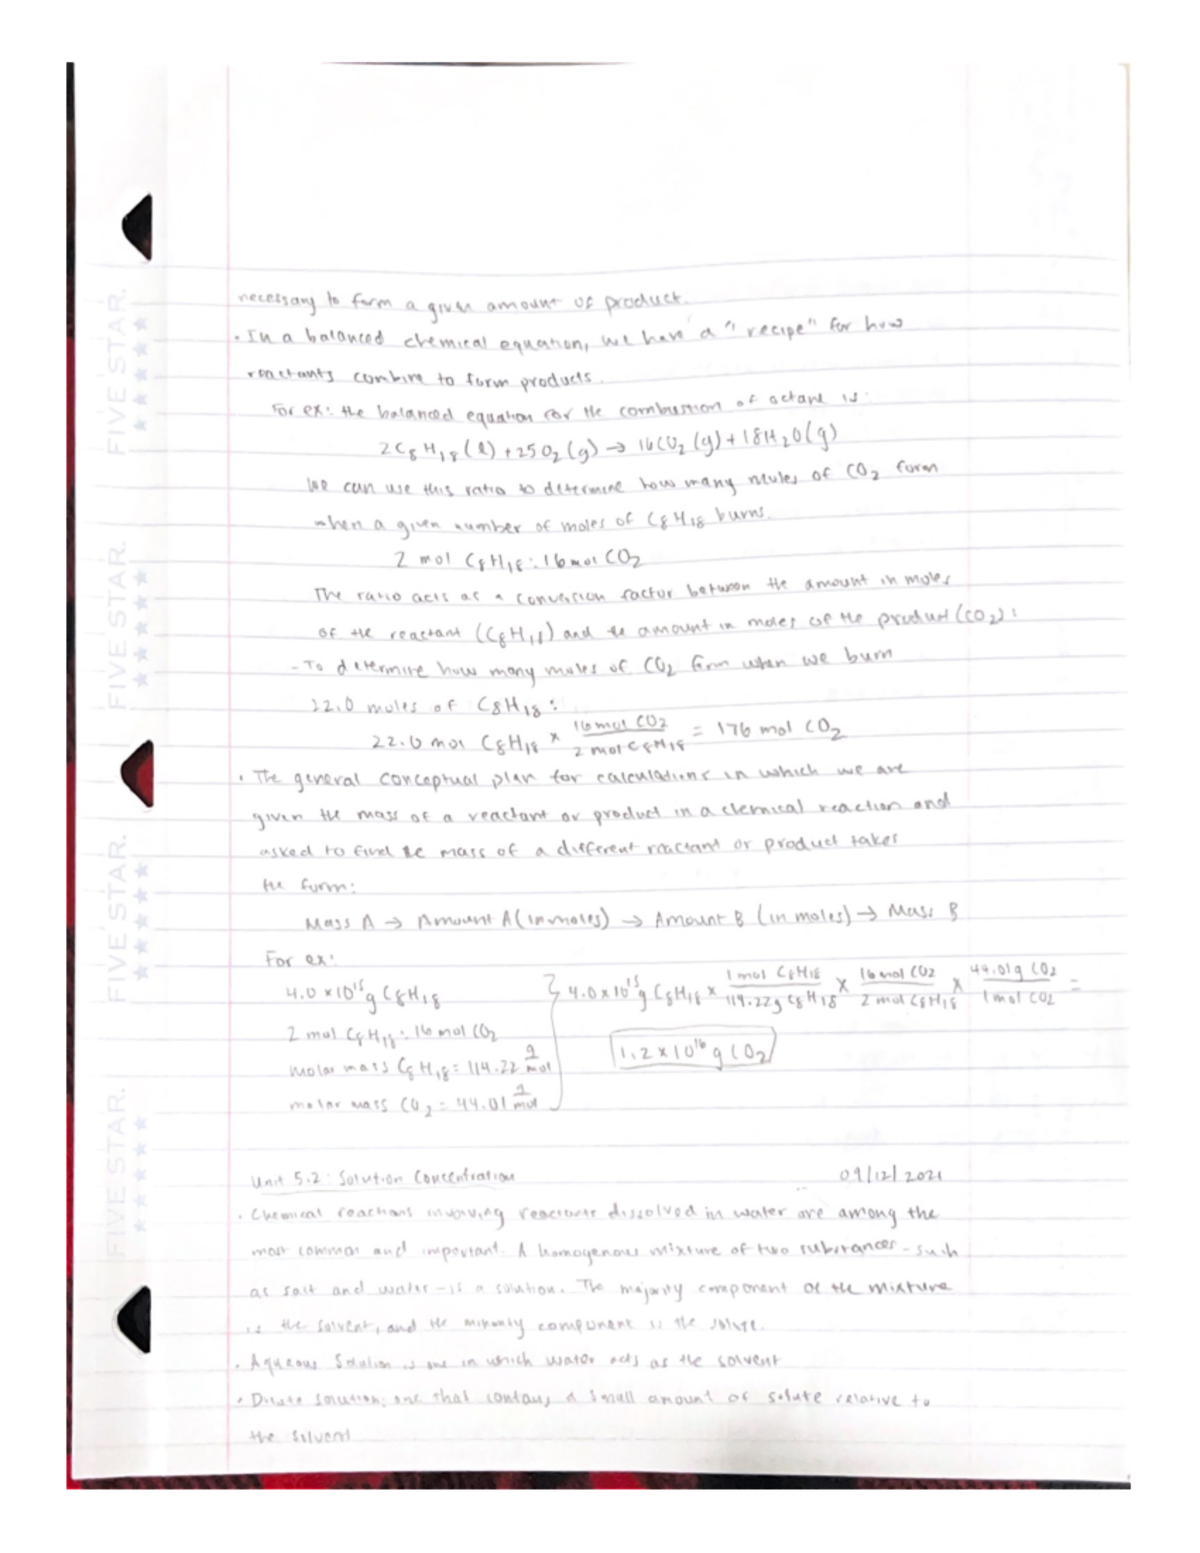 necessary to form a given amount of product.
• In a balanced chemical equation, we have a "recipe" for how
reactants combine to form products.
For ex: the balanced equation for the combustion of octane is:
2C₈H₁₈(l) + 25O₂(g) → 16CO₂(g) + 18H₂O(g)
We can use this ratio to determine how many moles of CO₂ form
when a given number of moles of C₈H₁₈ burns.
2 mol C₈H₁₈ : 16 mol CO₂
The ratio acts as a conversion factor between the amount in moles
of the reactant (C₈H₁₈) and the amount in moles of the product (CO₂):
- To determine how many moles of CO₂ form when we burn
22.0 moles of C₈H₁₈:
22.0 mol C₈H₁₈ × 16 mol CO₂ / 2 mol C₈H₁₈ = 176 mol CO₂
• The general conceptual plan for calculations in which we are
given the mass of a reactant or product in a chemical reaction and
asked to find the mass of a different reactant or product takes
the form:
Mass A → Amount A (in moles) → Amount B (in moles) → Mass B
For ex:
4.0 × 10¹⁵ g C₈H₁₈
2 mol C₈H₁₈ : 16 mol CO₂
molar mass C₈H₁₈ = 114.22 g/mol
molar mass CO₂ = 44.01 g/mol
4.0 × 10¹⁵ g C₈H₁₈ × 1 mol C₈H₁₈ / 114.22 g C₈H₁₈ × 16 mol CO₂ / 2 mol C₈H₁₈ × 44.01 g CO₂ / 1 mol CO₂ =
1.2 × 10¹⁶ g CO₂
Unit 5.2: Solution Concentration 09/12/2021
• Chemical reactions involving reactants dissolved in water are among the
most common and important. A homogenous mixture of two substances - such
as salt and water - is a solution. The majority component of the mixture
is the solvent, and the minority component is the solute.
• Aqueous Solution is one in which water acts as the solvent
• Dilute solution: one that contains a small amount of solute relative to
the solvent
FIVE STAR.
FIVE STAR.
FIVE STAR.
FIVE STAR.